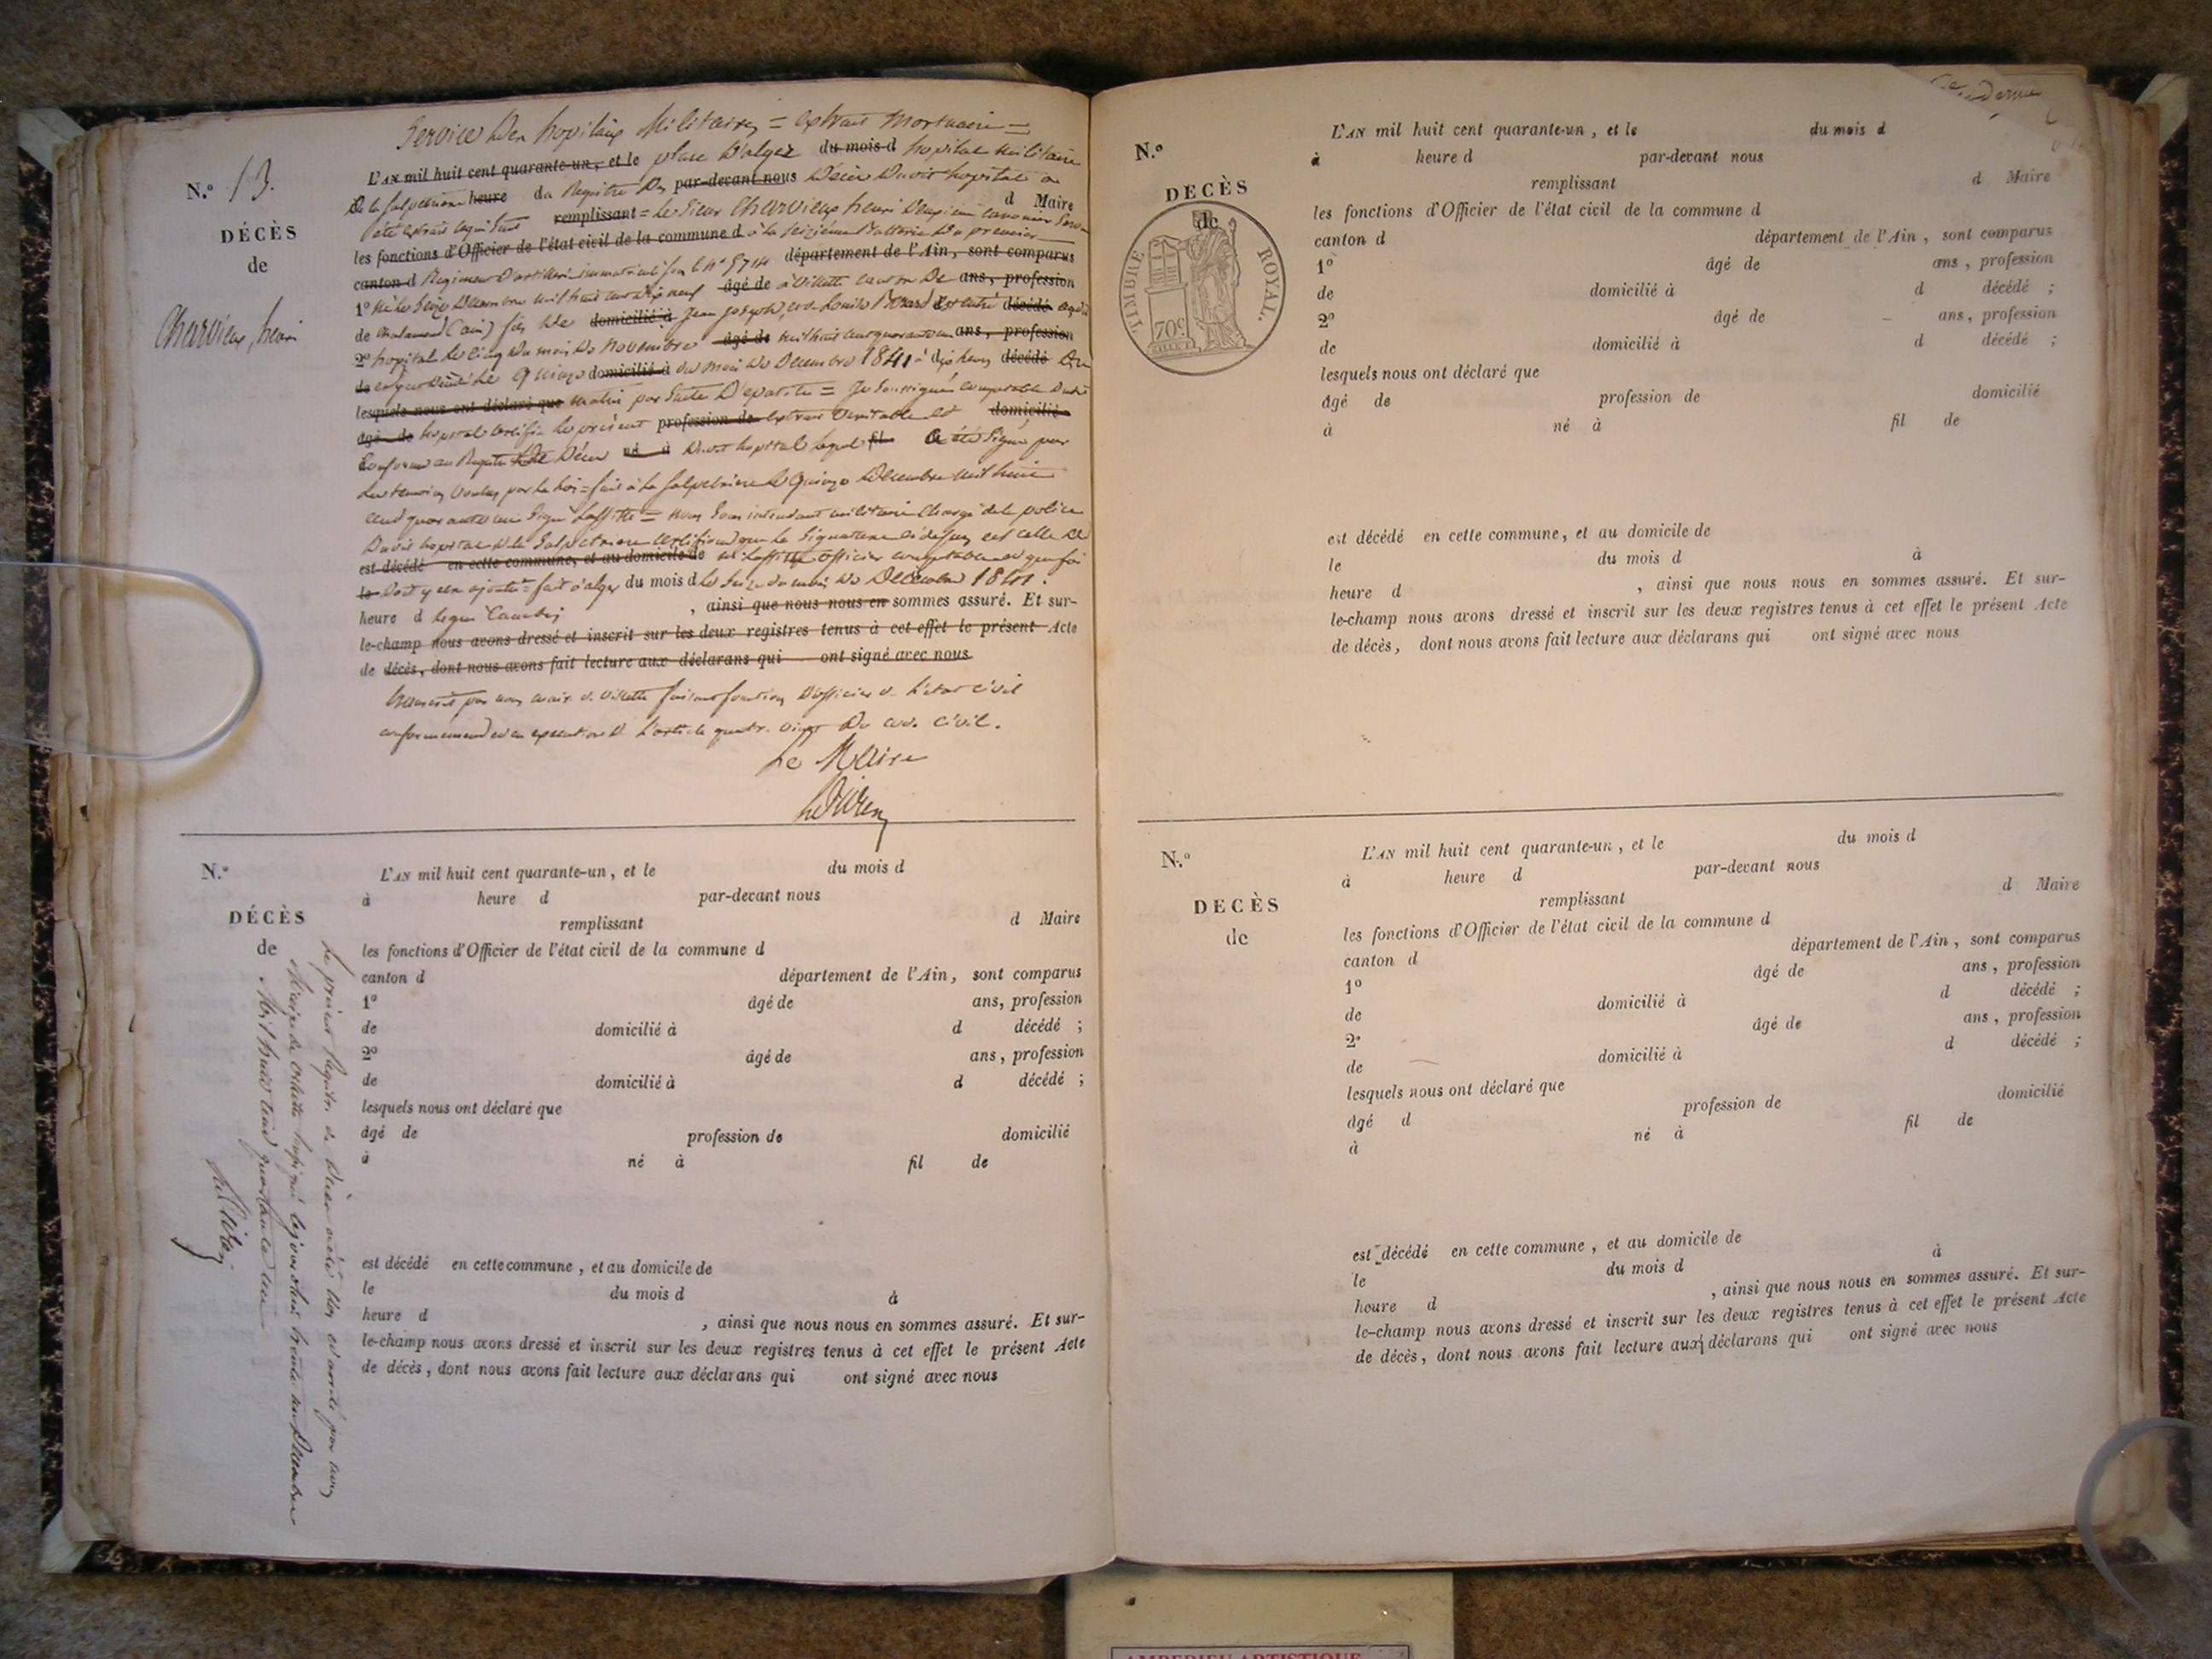 Service des hopitaux Militaires = extrait Mortuaire =
N.º 13.
DÉCÈS
de
Charvieux, henri
L'AN mil huit cent quarante-un, et le place d'alger du mois d hopital militaire
de la salpetriere heure du Registre des par-devant nous décès dudit hopital a
été extrait ce qui suit remplissant = le Sieur Charvieux henri deuxieme canonier d Maire
les fonctions d'Officier de l'état civil de la commune d à la seizieme Batterie du premier
canton d Regiment d'artillerie immatriculé sous le nº 5714 département de l'Ain, sont comparus
1º né le seize Decembre mil huit cent dix neuf âgé de à villette canton de ans, profession
de chalamont (ain) fils de domicilié à jean joseph, et de Louise décédé
2º hopital le cinq du mois de novembre âgé de mil huit cent quarante un ans, profession
de le quinze domicilié à du mois de Decembre 1841 à heures décédé du
lesquels nous ont déclaré que matin par Suite D' = Je Soussigné comptable dudit
âgé de hopital certifie le présent profession de extrait veritable et domicilié
conforme au Registre de Décès né à dudit hopital fil a été signé par
les temoins voulus par la loi = fait à la Salpetriere le quinze Decembre mil huit
cent quarante un Signé Laffitte = nous Sous intendant militaire chargé de la police
dudit hopital de la Salpetriere certifions que la Signature ci dessus est celle de
est décédé en cette commune, et au domicile de mr Laffitte officier comptable et que foi
le doit y etre ajoutée = fait à alger du mois d le seize du mois de Decembre 1841.
heure d , ainsi que nous nous en sommes assuré. Et sur-
le-champ nous avons dressé et inscrit sur les deux registres tenus à cet effet le présent Acte
de décès, dont nous avons fait lecture aux déclarans qui ont signé avec nous
transcrit par nous maire de villette faisant fonction d'officier de l'état civil
conformement et en execution de l'article quatre vingt du code civil.
Le Maire
N.º
DÉCÈS
de
L'AN mil huit cent quarante-un, et le du mois d
à heure d par-devant nous
remplissant d Maire
les fonctions d'Officier de l'état civil de la commune d
canton d département de l'Ain, sont comparus
1º âgé de ans, profession
de domicilié à d décédé ;
2º âgé de ans, profession
de domicilié à d décédé ;
lesquels nous ont déclaré que
âgé de profession de domicilié
à né à fil de
est décédé en cette commune, et au domicile de
le du mois d à
heure d , ainsi que nous nous en sommes assuré. Et sur-
le-champ nous avons dressé et inscrit sur les deux registres tenus à cet effet le présent Acte
de décès, dont nous avons fait lecture aux déclarans qui ont signé avec nous
Le présent Registre de Décès a été clos et arreté par nous
Maire de Villette soussigné cejourd'hui trente un Decembre
Mil huit cent quarante un
N.º
DÉCÈS
de
TIMBRE ROYAL.
70c.
L'AN mil huit cent quarante-un, et le du mois d
à heure d par-devant nous
remplissant d Maire
les fonctions d'Officier de l'état civil de la commune d
canton d département de l'Ain, sont comparus
1º âgé de ans, profession
de domicilié à d décédé ;
2º âgé de ans, profession
de domicilié à d décédé ;
lesquels nous ont déclaré que
âgé de profession de domicilié
à né à fil de
est décédé en cette commune, et au domicile de
le du mois d à
heure d , ainsi que nous nous en sommes assuré. Et sur-
le-champ nous avons dressé et inscrit sur les deux registres tenus à cet effet le présent Acte
de décès, dont nous avons fait lecture aux déclarans qui ont signé avec nous
N.º
DECÈS
de
L'AN mil huit cent quarante-un, et le du mois d
à heure d par-devant nous
remplissant d Maire
les fonctions d'Officier de l'état civil de la commune d
canton d département de l'Ain, sont comparus
1º âgé de ans, profession
de domicilié à d décédé ;
2º âgé de ans, profession
de domicilié à d décédé ;
lesquels nous ont déclaré que
âgé d profession de domicilié
à né à fil de
est décédé en cette commune, et au domicile de
le du mois d à
heure d , ainsi que nous nous en sommes assuré. Et sur-
le-champ nous avons dressé et inscrit sur les deux registres tenus à cet effet le présent Acte
de décès, dont nous avons fait lecture aux déclarans qui ont signé avec nous
AMBERIEU ARTISTIQUE